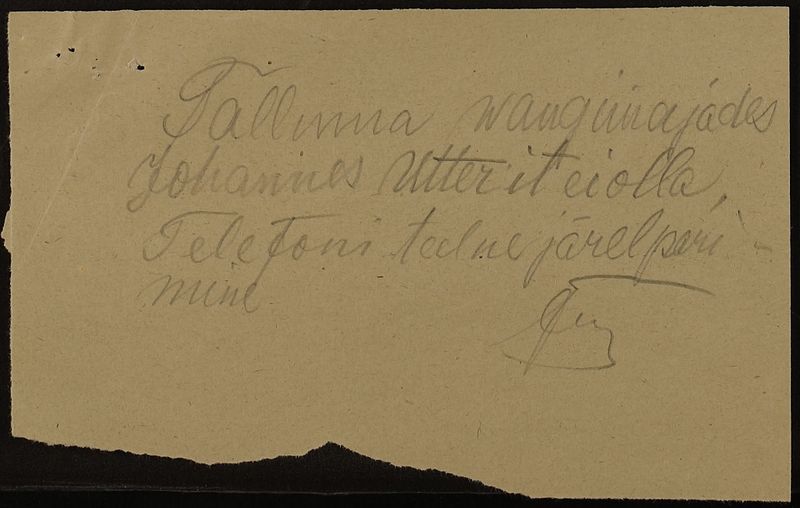 Tallinna wangimajades
Johannes Utterit ei olla,
Telefoni teelne järelpäri-
mine